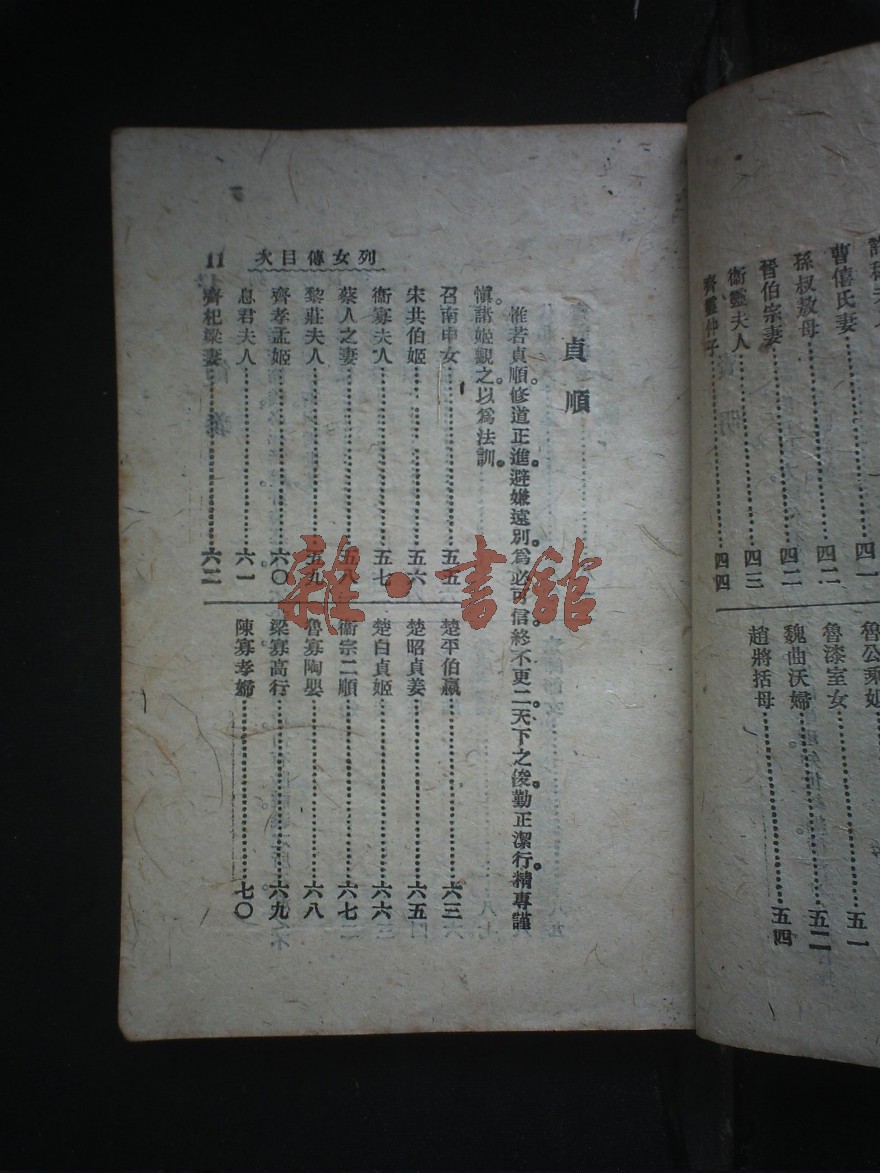 曹僖氏妻……四一
孫叔敖母……四二
晉伯宗妻……四二
衞靈夫人……四三
齊靈仲子……四四
魯公乘姒
魯漆室女……五一
魏曲沃婦……五二
趙將括母……五四
列女傳目次 11
貞順
惟若貞順。修道正進。避嫌遠別。爲必可信。終不更二。天下之俊。勤正潔行。精專謹
愼。諸姬觀之。以爲法訓。
召南申女……五五
宋共伯姬……五六
衞寡夫人……五七
蔡人之妻……五八
黎莊夫人……五九
齊孝孟姬……六〇
息君夫人……六一
齊杞梁妻……六二
楚平伯嬴……六三
楚昭貞姜……六五
楚白貞姬……六六
衞宗二順……六七
魯寡陶嬰……六八
梁寡高行……六九
陳寡孝婦……七〇
雜·書館